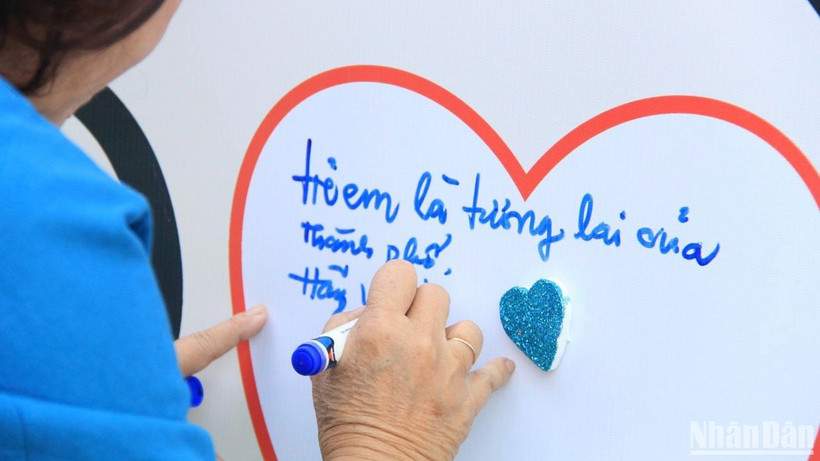 trẻ em là tương lai của
thành phố
Hãy
Nhân Dân